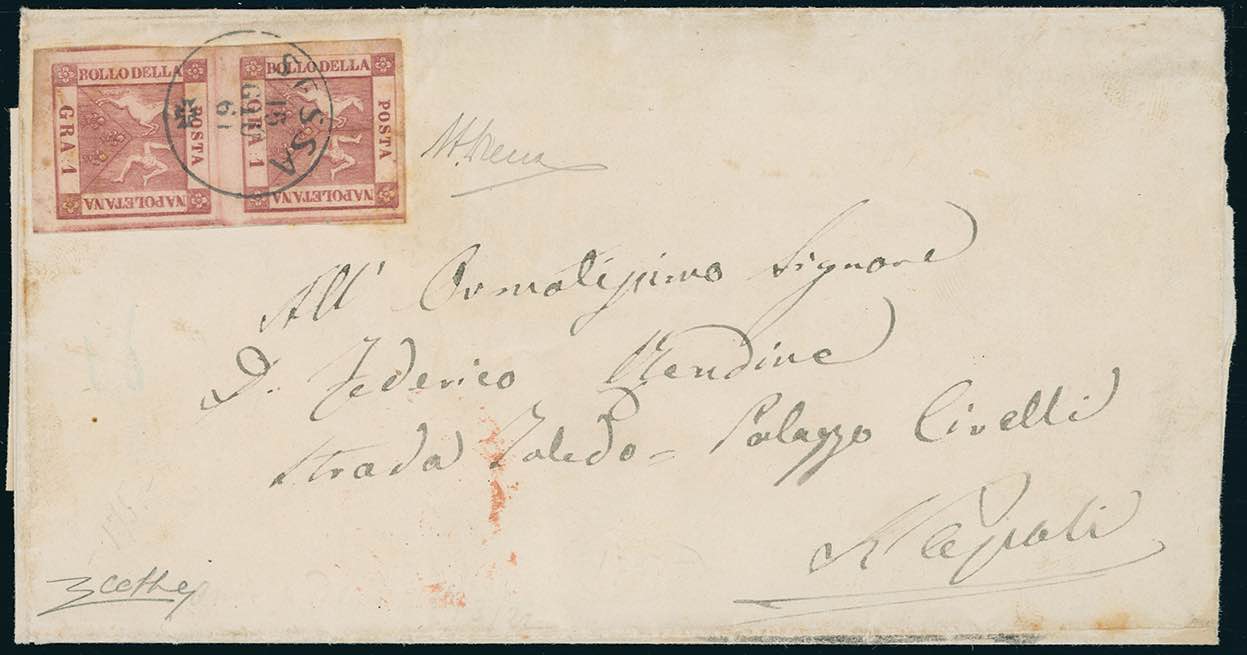 BOLLO DELLA
POSTA
NAPOLETANA
GRA 1
BOLLO DELLA
POSTA
NAPOLETANA
GRA 1
SESSA
15
61
All' Ornatissimo Signore
D. Federico
Strada Toledo = Palazzo Civelli
Napoli